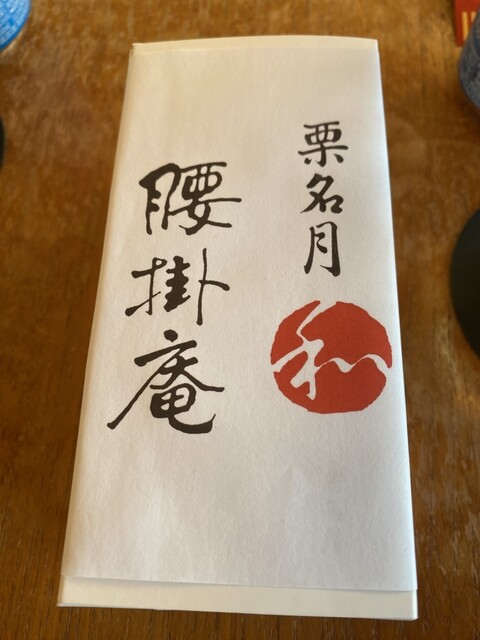 栗名月
和
腰掛庵